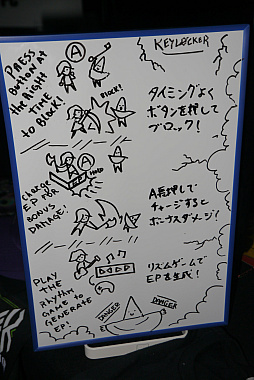 KEYLOCKER
PRESS
BUTTON AT
the RIGHT
TIME
to BLOCK!
A
BLOCK!
タイミングよく
ボタンを押して
ブロック!
CHARGE
EP FOR
BONUS
DAMAGE!
A
HOLD
A長押しで
チャージすると
ボーナスダメージ!
PLAY
THE
RHYTHM
GAME to
GENERATE
EP!
リズムゲームで
EPを生成!
DANGER
DANGER